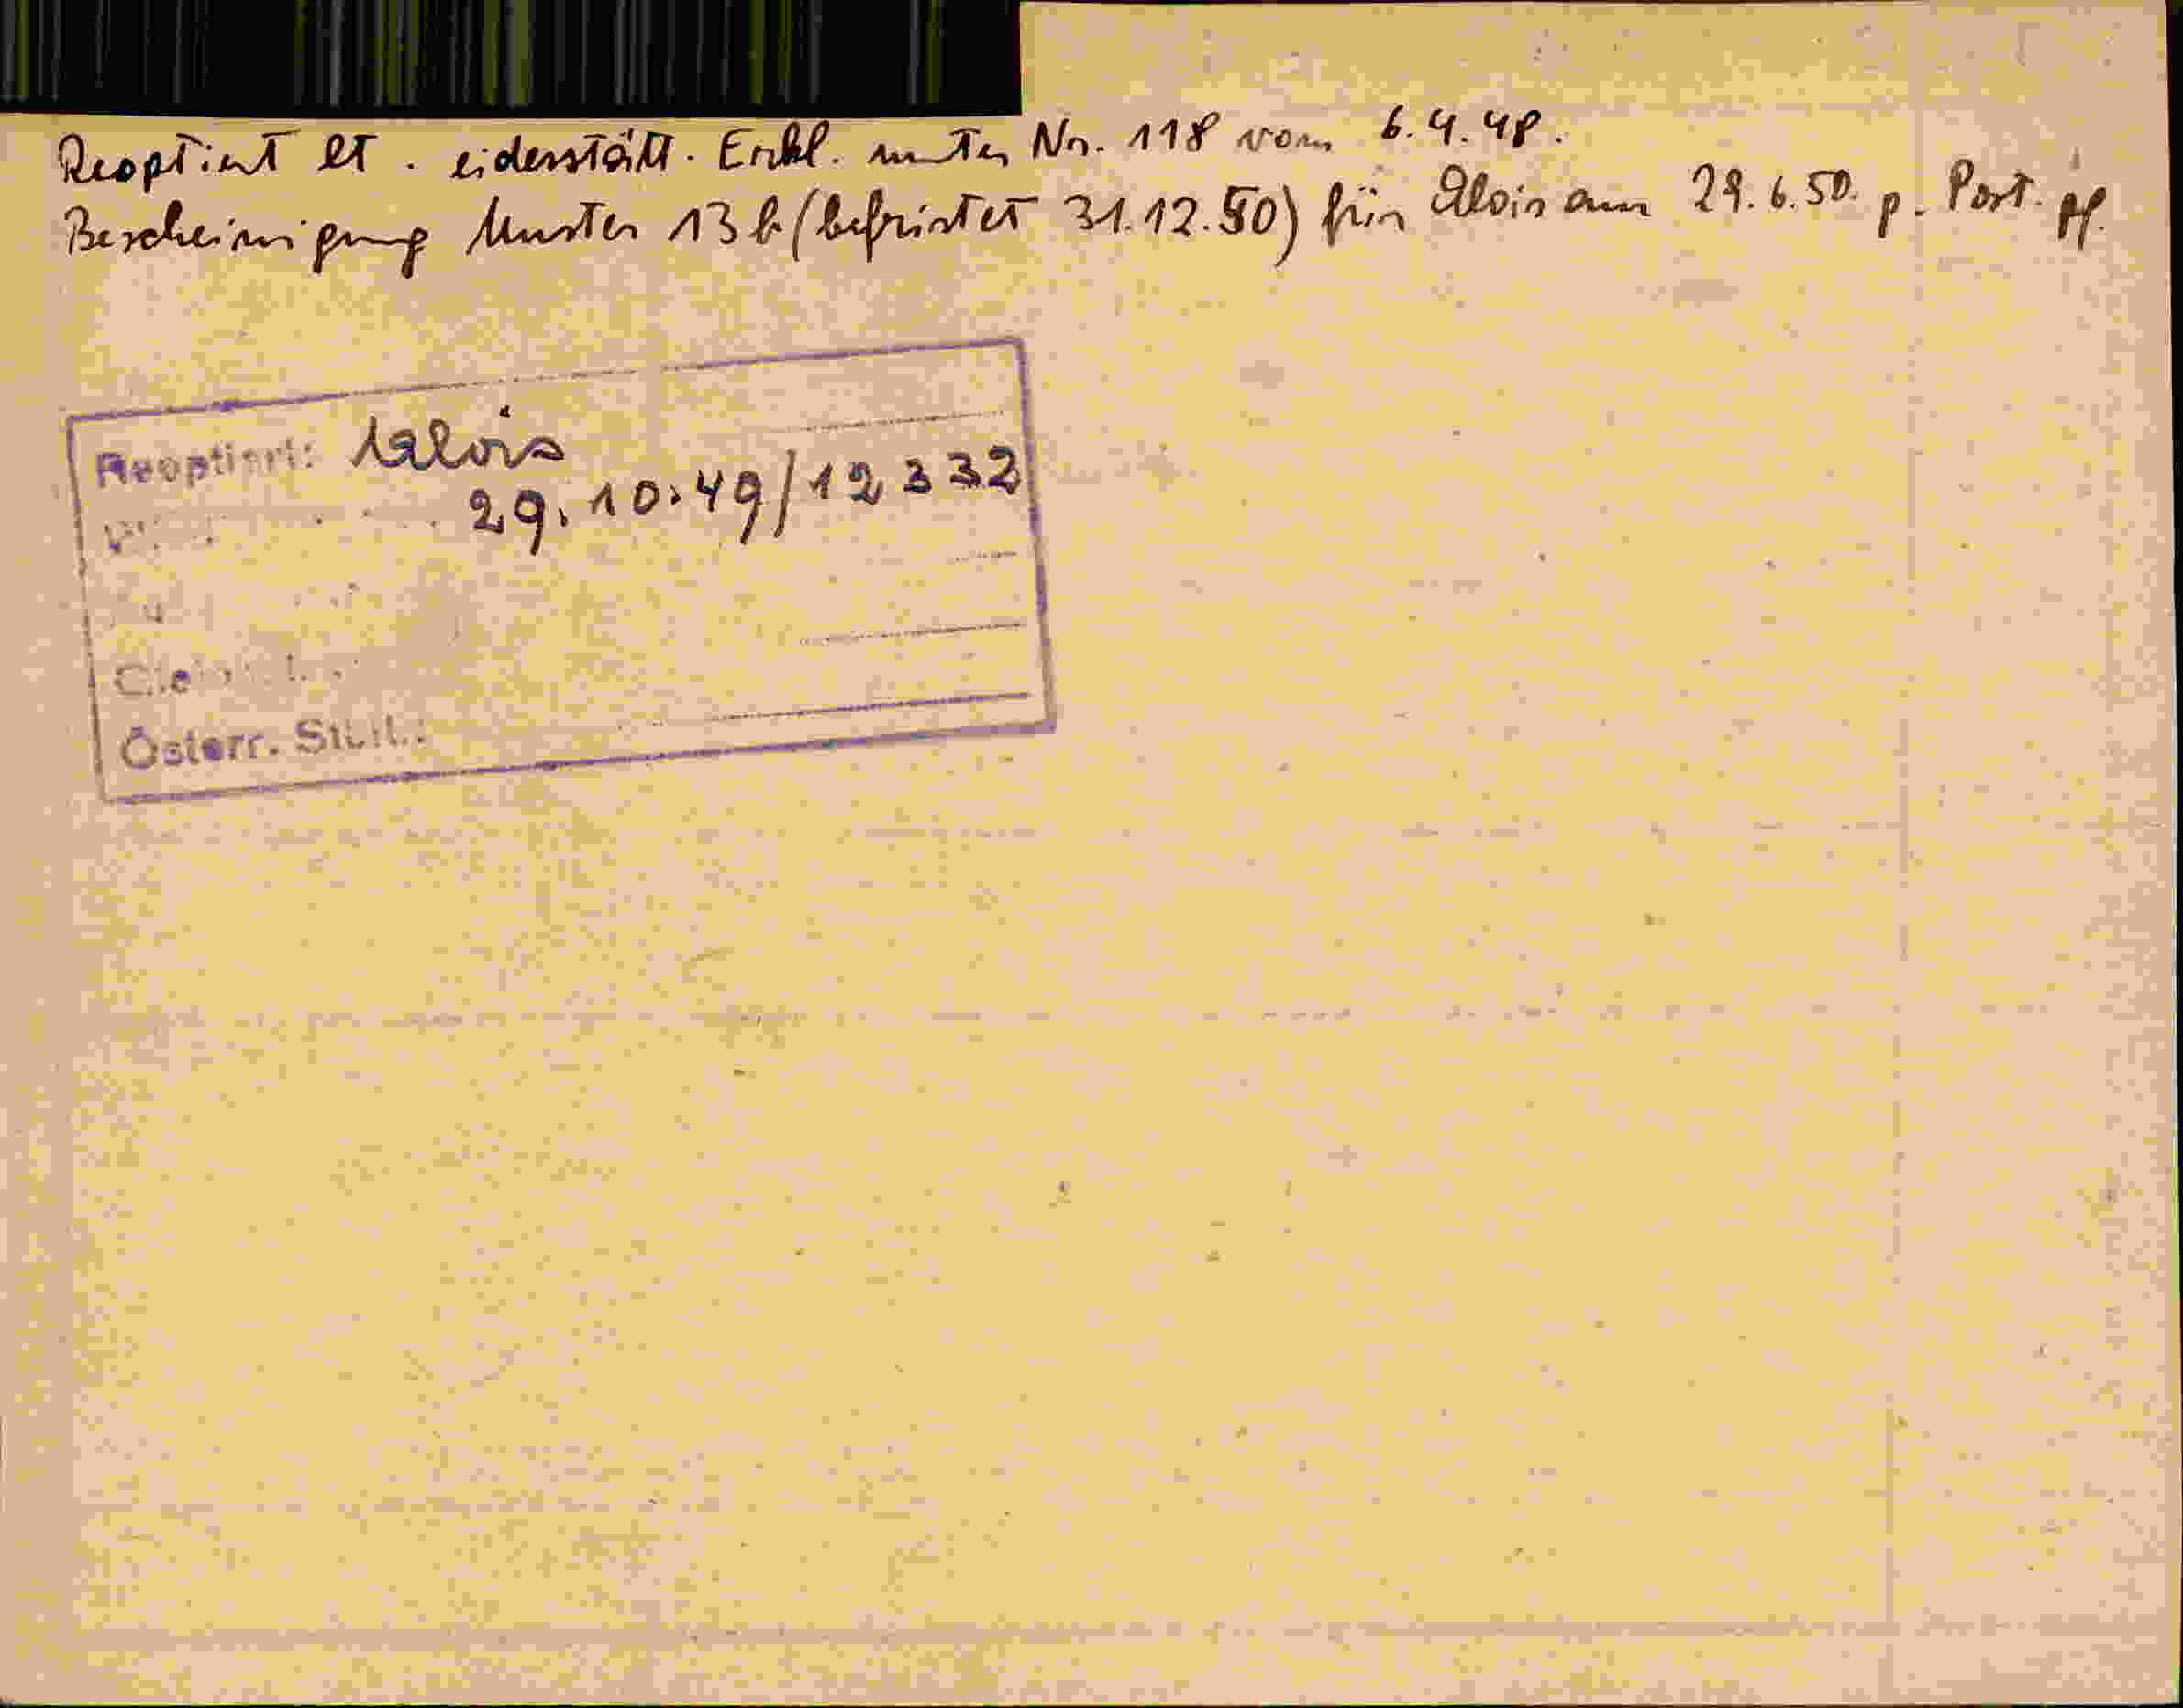 Reoptiert lt. eidesstätt. Erkl. unter Nr. 118 vom 6.4.48.
Bescheinigung Muster 13b (befristet 31.12.50) für Alois am 29.6.50. p. Post.
Reoptiert: Alois
29.10.49/12332
Österr.